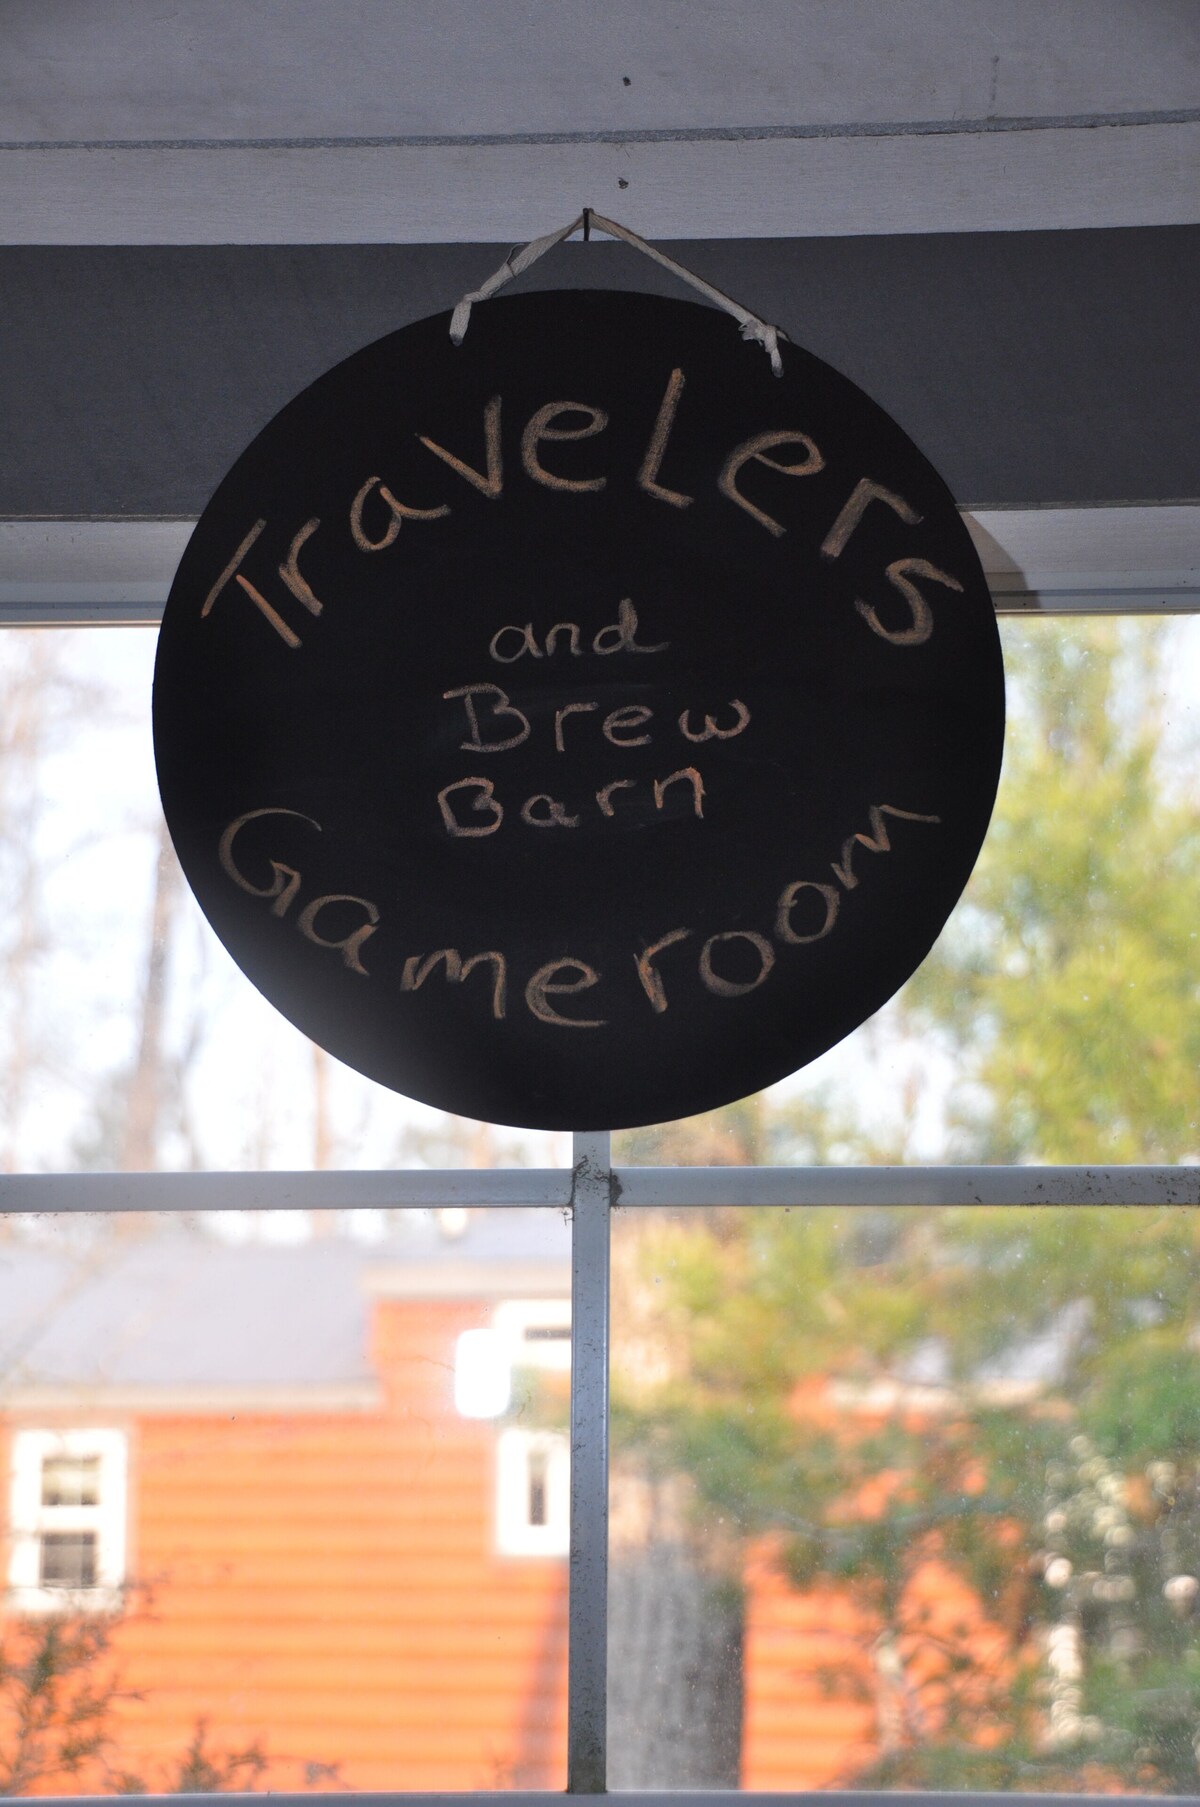 Travelers
and
Brew
Barn
Gameroom